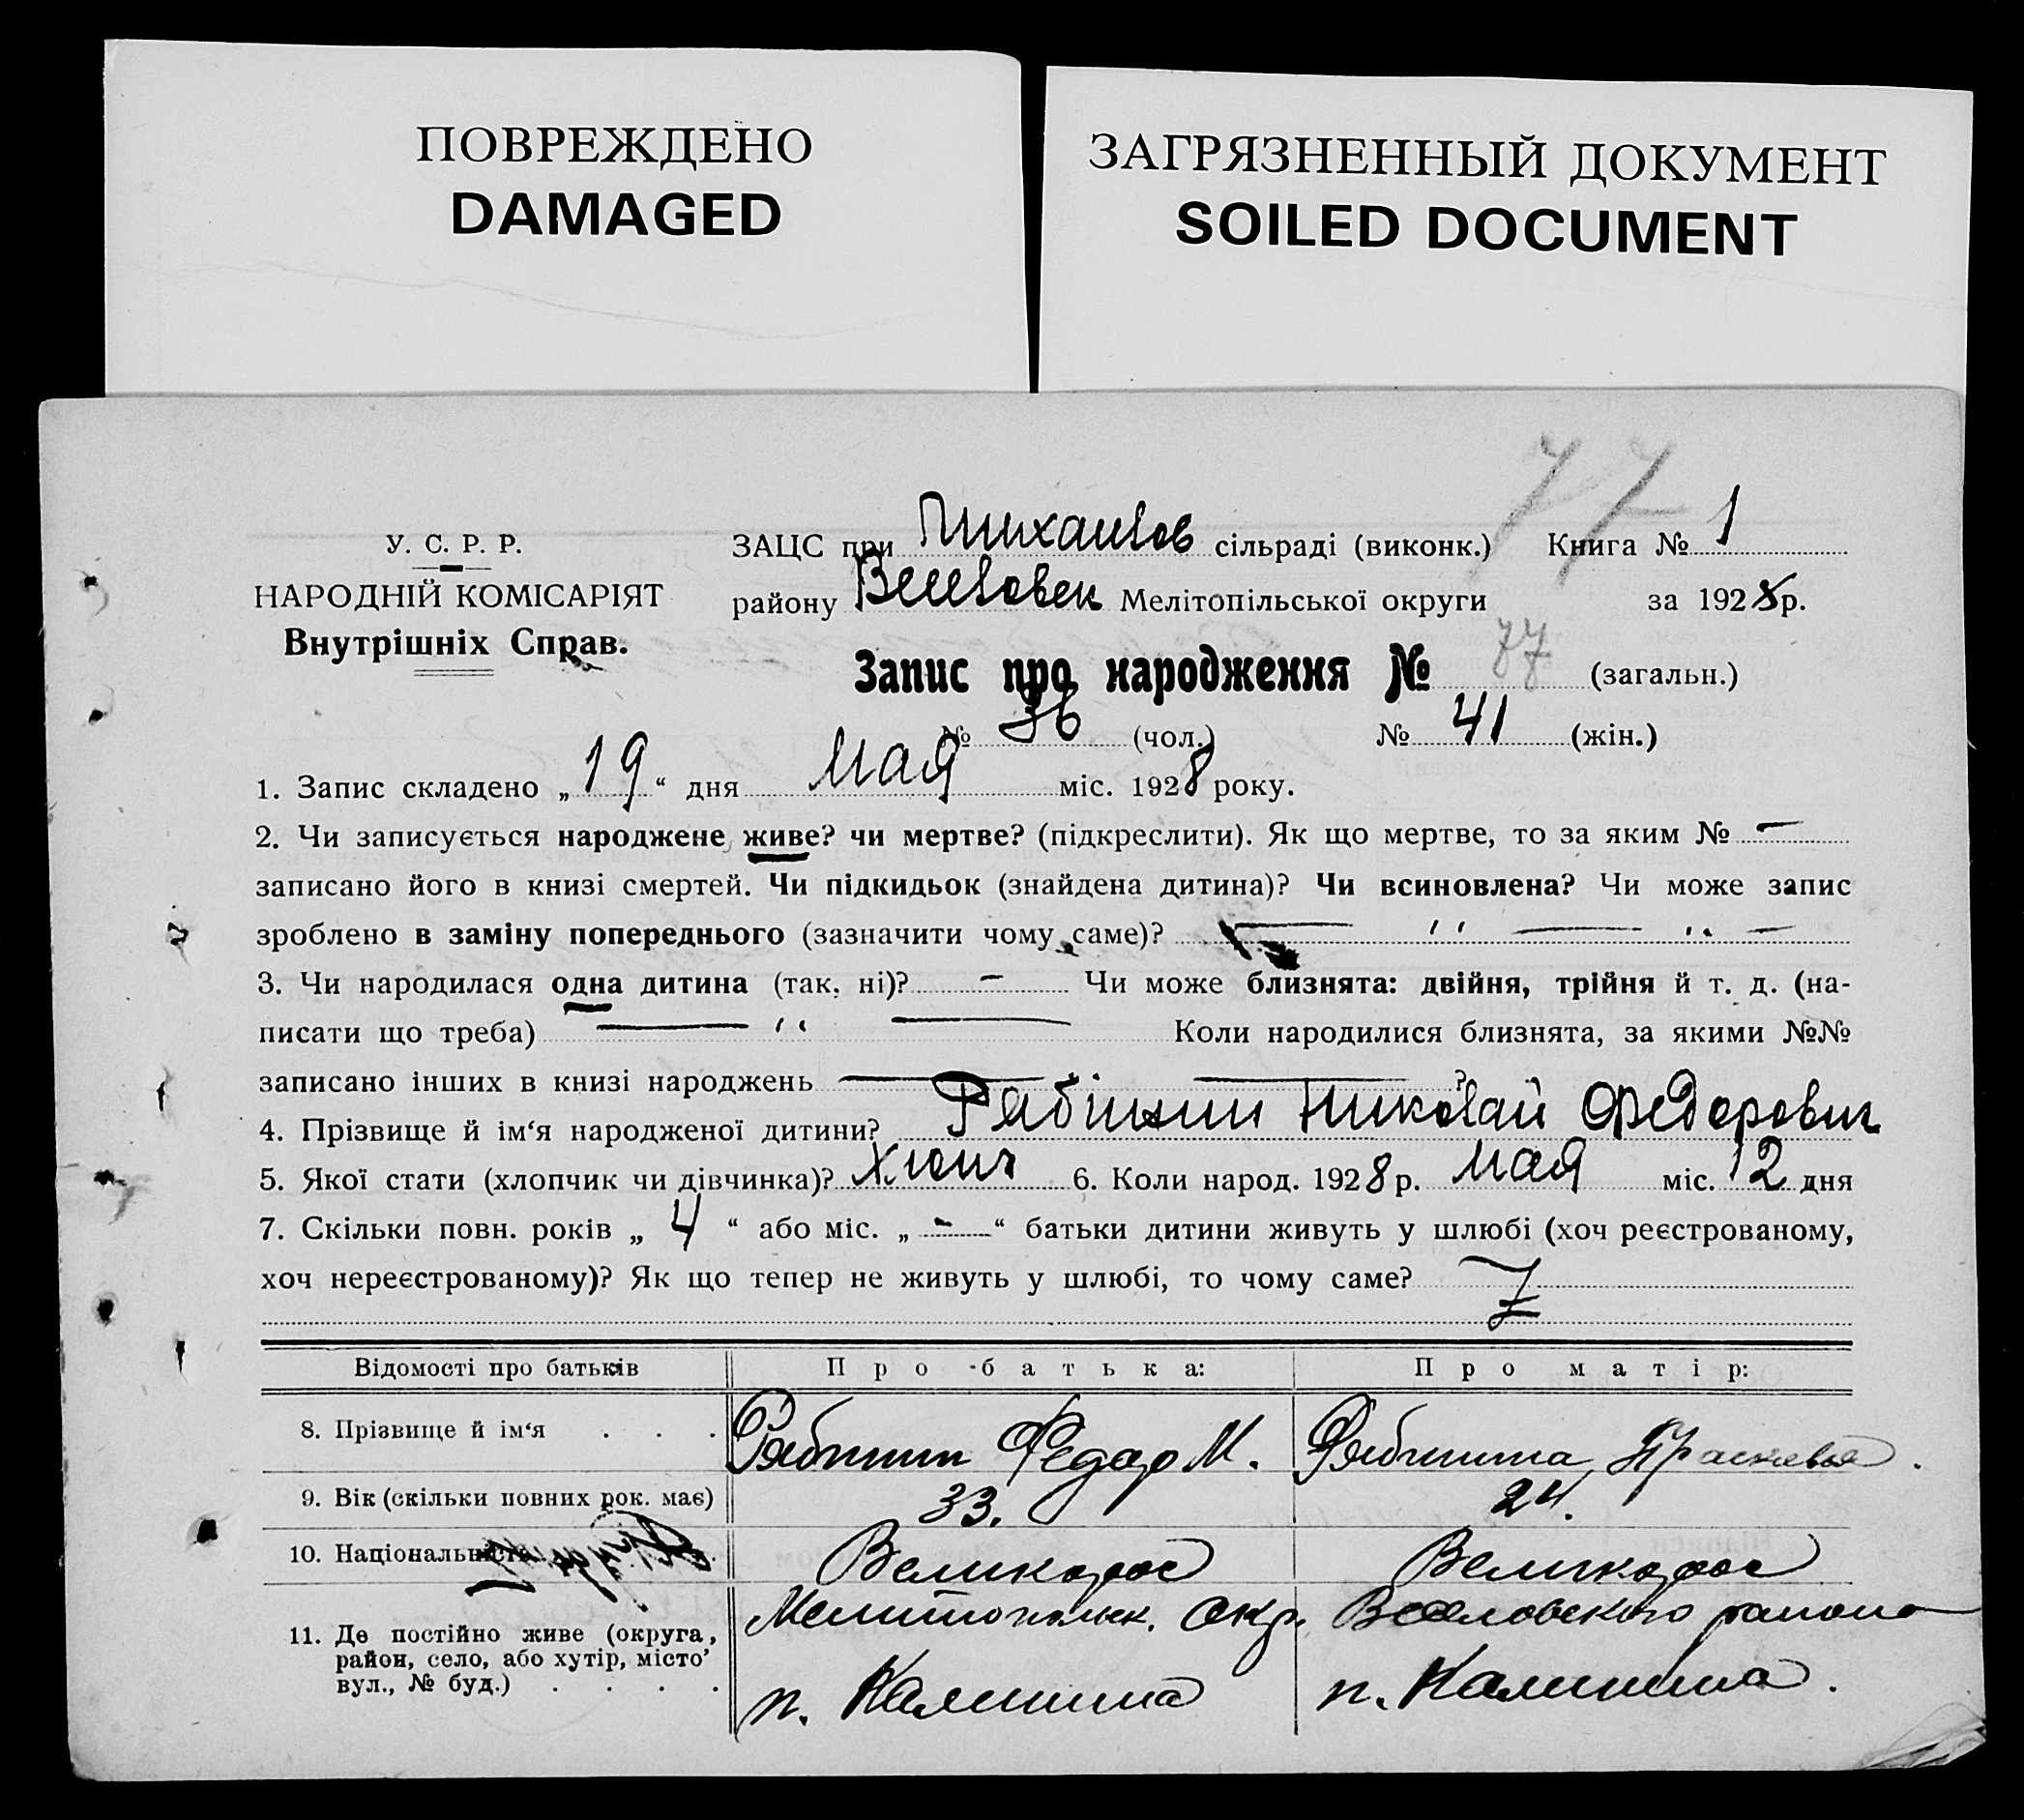 ПОВРЕЖДЕНО
DAMAGED
ЗАГРЯЗНЕННЫЙ ДОКУМЕНТ
SOILED DOCUMENT
77
У. С. Р. Р.
НАРОДНІЙ КОМІСАРІЯТ
Внутрішніх Справ.
ЗАЦС при сільраді (виконк.) Книга № 1
району Мелітопільської округи за 1928 р.
Запис про народження № 77 (загальн.)
№ 36 (чол.) № 41 (жін.)
1. Запис складено „19“ дня мая міс. 1928 року.
2. Чи записується народжене живе? чи мертве? (підкреслити). Як що мертве, то за яким № —
записано його в книзі смертей. Чи підкидьок (знайдена дитина)? Чи всиновлена? Чи може запис
зроблено в заміну попереднього (зазначити чому саме)? — ″ — ″ —
3. Чи народилася одна дитина (так, ні)? — Чи може близнята: двійня, трійня й т. д. (на-
писати що треба) — ″ — Коли народилися близнята, за якими №№
записано інших в книзі народжень — — ?
4. Прізвище й ім‘я народженої дитини? Николай Федорович
5. Якої стати (хлопчик чи дівчинка)? 6. Коли народ. 1928 р. мая міс. 12 дня
7. Скільки повн. років „4“ або міс. „—“ батьки дитини живуть у шлюбі (хоч реєстрованому,
хоч нереєстрованому)? Як що тепер не живуть у шлюбі, то чому саме?
Відомості про батьків Про батька: Про матір:
8. Прізвище й ім‘я . . . Федор М. Прасковья.
9. Вік (скільки повних рок. має) 33. 24.
10. Національність Великорос Великорос
11. Де постійно живе (округа, район, село, або хутір, місто’ вул., № буд.) . . . .
Мелитопольск. окр. Веселовского района
п. Калинина п. Калинина.